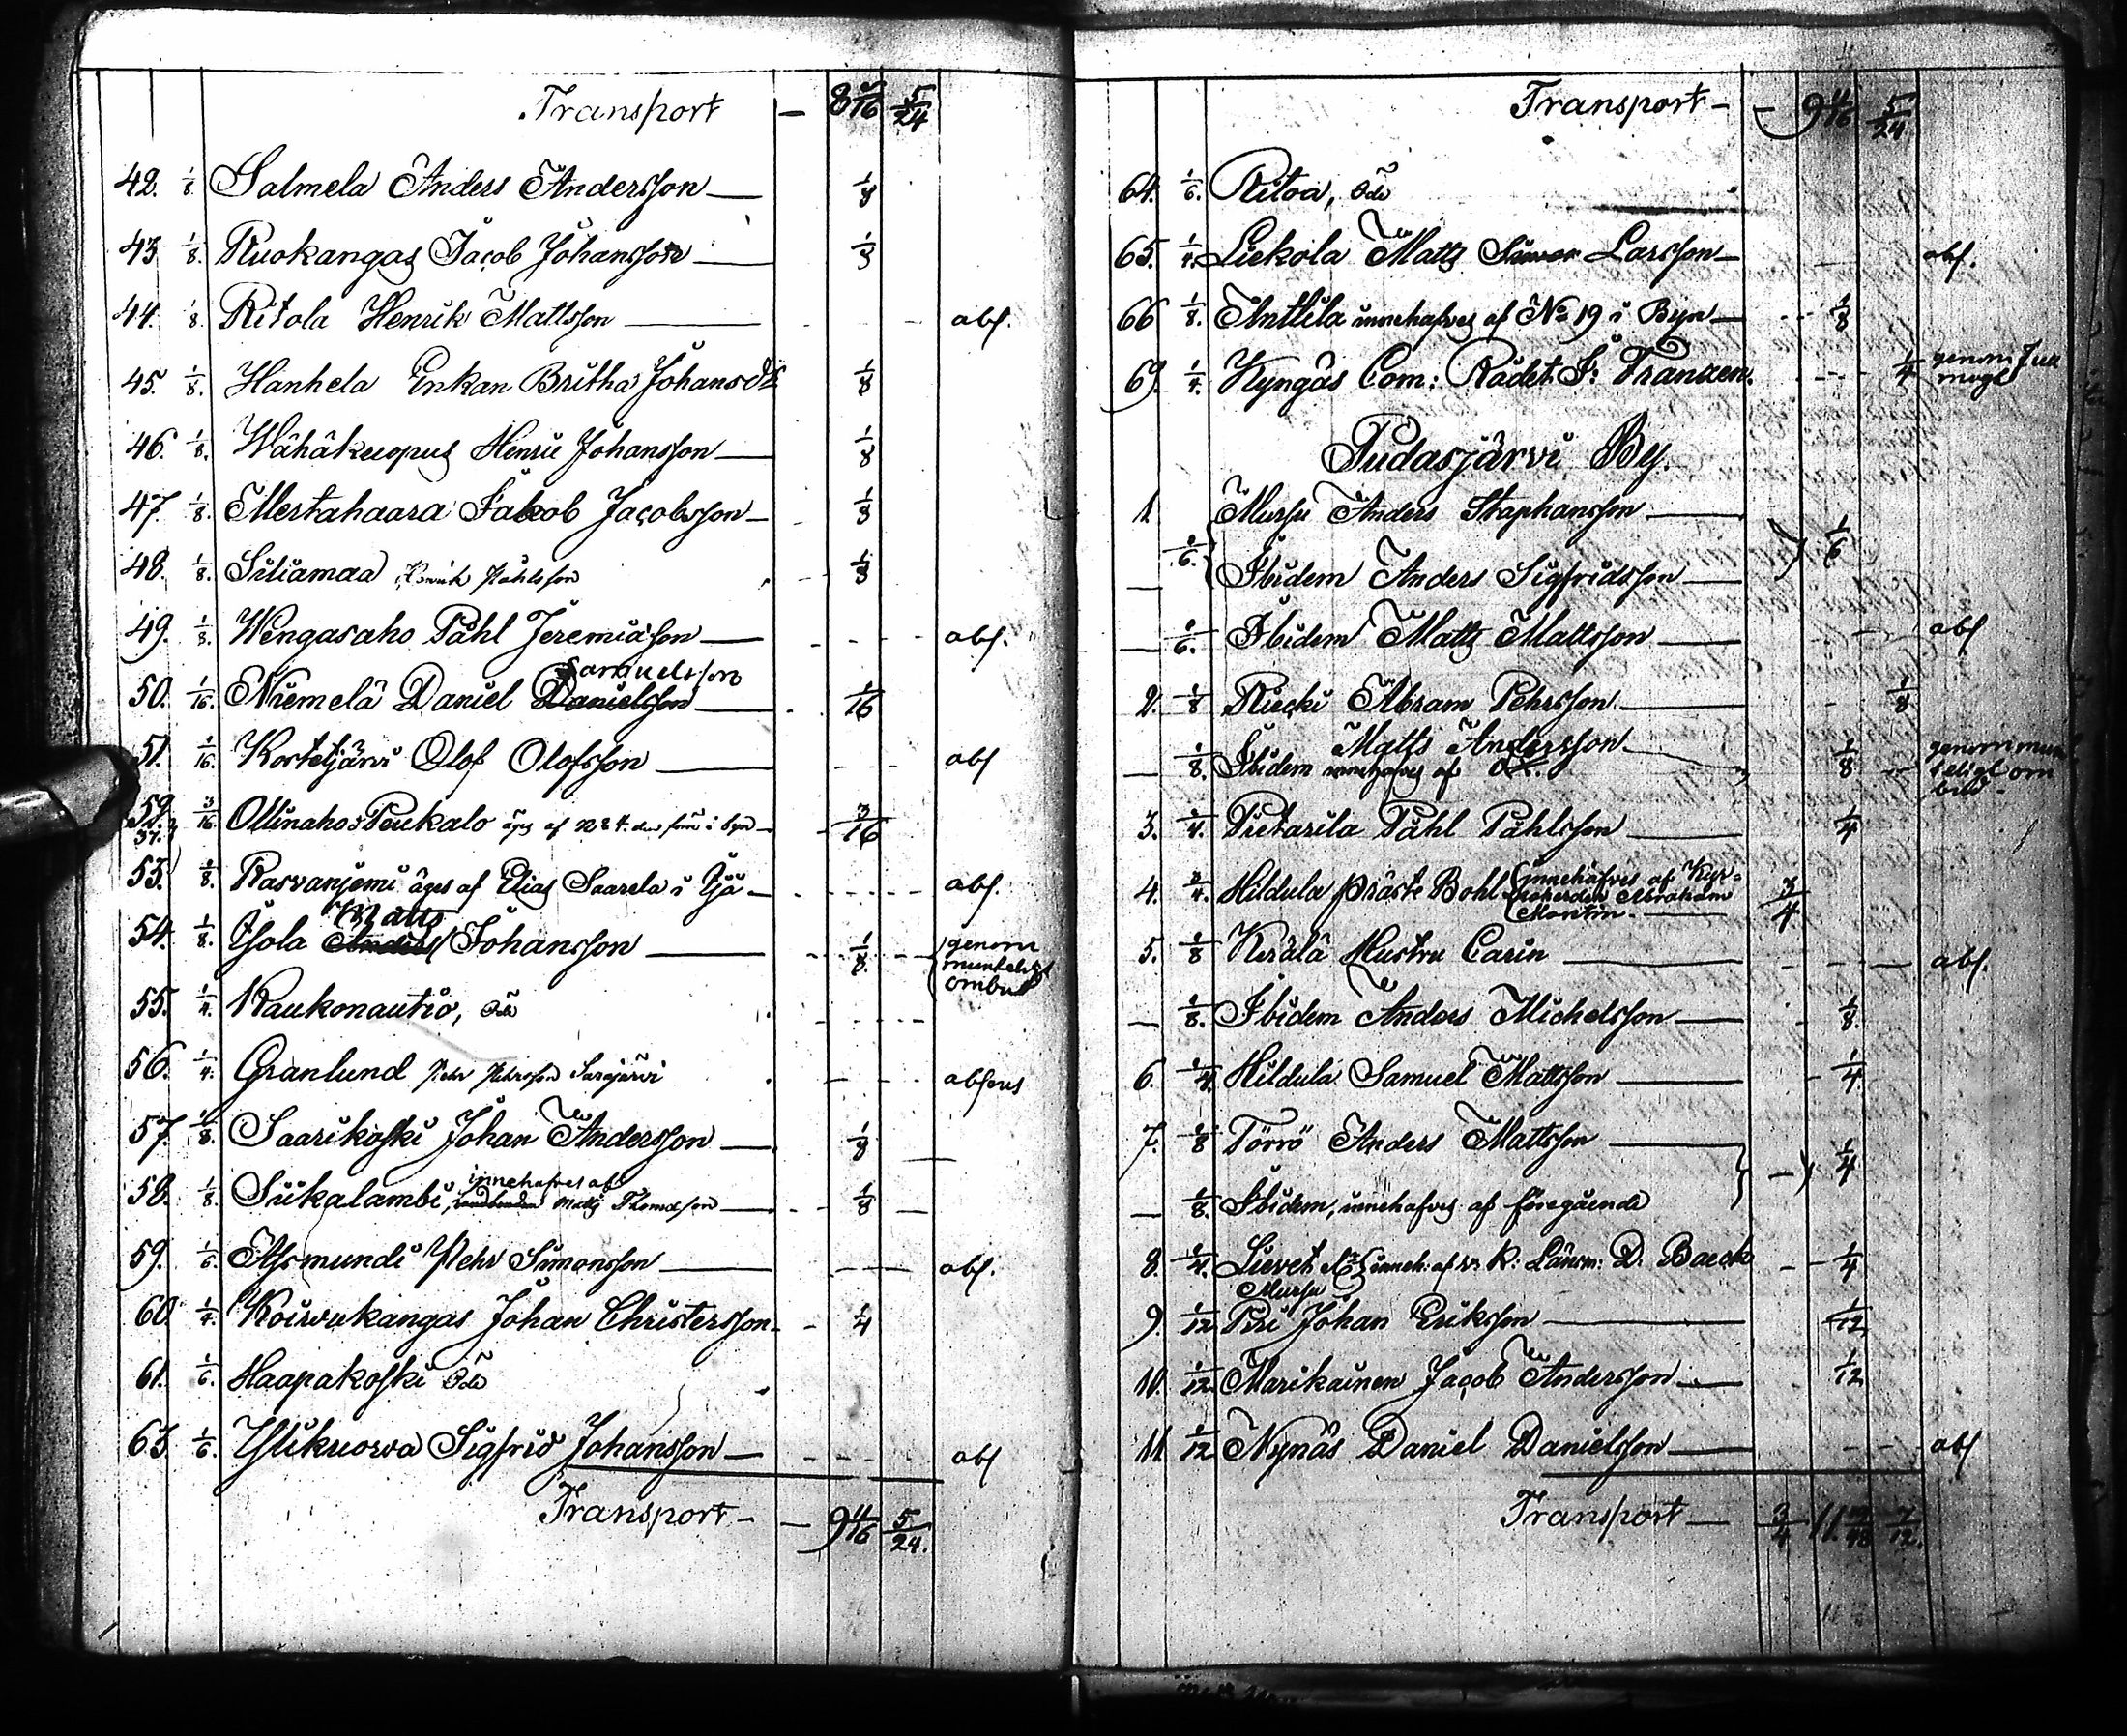 Transport — 8 /16 5/24
42. 1/8 Salmela Anders Andersson — 1/8
43 1/8. Ruokangas Jacob Johansson — 1/8
44. 1/8. Ritola Henrik Mattsson — abs.
45. 1/8. Hanhela Enkan Britha Johansdr 1/8
46. 1/8. Wähäkuopus Henric Johansson — 1/8
47. 1/8. Mertahaara Jakob Jacobsson — 1/8
48. 1/8. Siliamaa Henrik Påhlsson 1/8
49. 1/8. Wengasaho Påhl Jeremiasson — abs.
Samuelsson
50. 1/16. Niemelä Daniel Danielsson — 1/16
51. 1/16. Kortetjärvi Olof Olofsson — abs
52. 37. 3/16. Ollinaho & Peukalo äges af N 24. i byn — 3/16
53. 1/8. Rasvanjemi äges af Elias Saarela i Ijå — abs.
Matts
54. 1/8. Ijola Anders Johansson — 1/8. genom munteligt ombud
55. 1/4. Kaukonautio, Öde
56. 1/4. Granlund Pehr Pehrsson Sarajärvi absens
57. 1/8. Saarikoski Johan Andersson — 1/8
innehafves af
58. 1/8. Siikalambi, Matts Thomasson — 1/8 —
59. 1/6. Asmundi Pehr Simonsson — abs.
60 1/4. Koivukangas Johan Christersson — 1/4
61. 1/6. Haapakoski Öde
63 1/6. Ylikuorva Sigfrid Johansson — abs
Transport — 9 11/16 5/24.
Transport — 9 11/16 5/24
64. 1/6. Ritoa, Öde
65. 1/4. Liekola Matts Larsson — abs.
66 1/8. Anttila innehafves af No 19 i Byn — 1/8
69. 1/4. Kyngäs Com: Rådet Fr: Franzen. 1/4 genom
Pudasjärvi By.
1. Mursu Anders Staphansson —
1/6. Ibidem Anders Sigfridsson — 1/6
— 1/6. Ibidem Matts Mattsson — abs
2. 1/8 Riecki Abram Pehrsson — 1/8
Matts Andersson
— 1/8. Ibidem innehafves af 1/8 genom munteligt ombud
3. 1/4. Pietarila Påhl Påhlsson — 1/4
4. 3/4. Hildula präste Bohl innehafves af Kyrkoherden Abraham Montin. — 3/4
5. 1/8 Kerälä Hustru Carin — abs.
— 1/8. Ibidem Anders Michelsson — 1/8.
6. 1/4. Hildula Samuel Mattsson — 1/4
7. 1/8 Törrö Anders Mattsson —
— 1/8. Ibidem, innehafves af föregående 1/4
8. 1/4. Sievet inneh: af v. K: Länsm: D. Baeck 1/4
Mursu
9. 1/12 Piri Johan Eriksson — 1/12
10. 1/12 Marikainen Jacob Andersson — 1/12
11. 1/12 Nynäs Daniel Danielsson — abs
Transport — 3/4 11 /48 7/12.